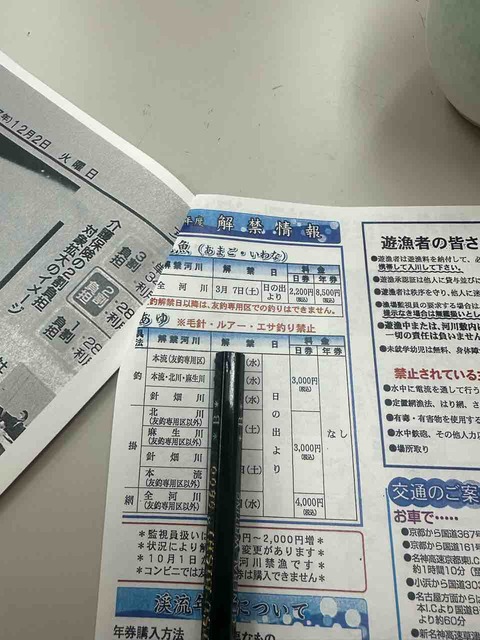 年)12月2日 火曜日
介護保険の2割負担
対象拡大のイメージ
3割
負担
2割
負担
1割
負担
年度 解禁情報
魚(あまご・いわな)
解禁河川 解禁日 料金
日券 年券
全河川 3月7日(土) 日の出より 2,200円(税込) 8,500円(税込)
解禁日以降は、友釣専用区での釣りはできません。
あゆ ※毛針・ルアー・エサ釣り禁止
法 解禁河川 解 日 料金
日券 年券
釣 本流(友釣専用区) (水)
本流・北川・麻生川 (水)
針畑川 (水)
3,000円(税込)
掛 北川(友釣専用区以外)
麻生川(友釣専用区以外) (土)
針畑川
本流(友釣専用区以外) (土)
3,000円(税込)
網 全河川(友釣専用区以外) (水) 4,000円(税込)
日の出より
なし
*監視員扱いは 円~2,000円増*
*状況により解 変更があります*
*10月1日か 河川禁漁です*
*コンビニでは 券は購入できません*
渓流年 について
年券購入方法 なもの
遊漁者の皆さ
●遊漁者は遊漁料を納付して、必
携帯して入川して下さい。
●遊漁承認証は他人に貸与並びに
●遊漁者は秩序を守り、他人に迷
●漁場監視員の要求する場合は、
提示なき場合は無鑑扱いとし
●遊漁中または、河川敷内に
一切の責任は負いません
●未就学幼児は無料、身体障
禁止されている
●水中に電流を通して行う
●定置網漁法、はり網、さ
●有毒・有害物を使用する
●水中鉄砲、その他人工
●場所取り
交通のご案
お車で‥‥‥
●京都から国道367号
●京都から国道161号
●名神高速京都東I.C
約1時間10分(
●小浜から国道303
●名古屋方面からは
本I.Cより国道8
より約60
●新名神高速草